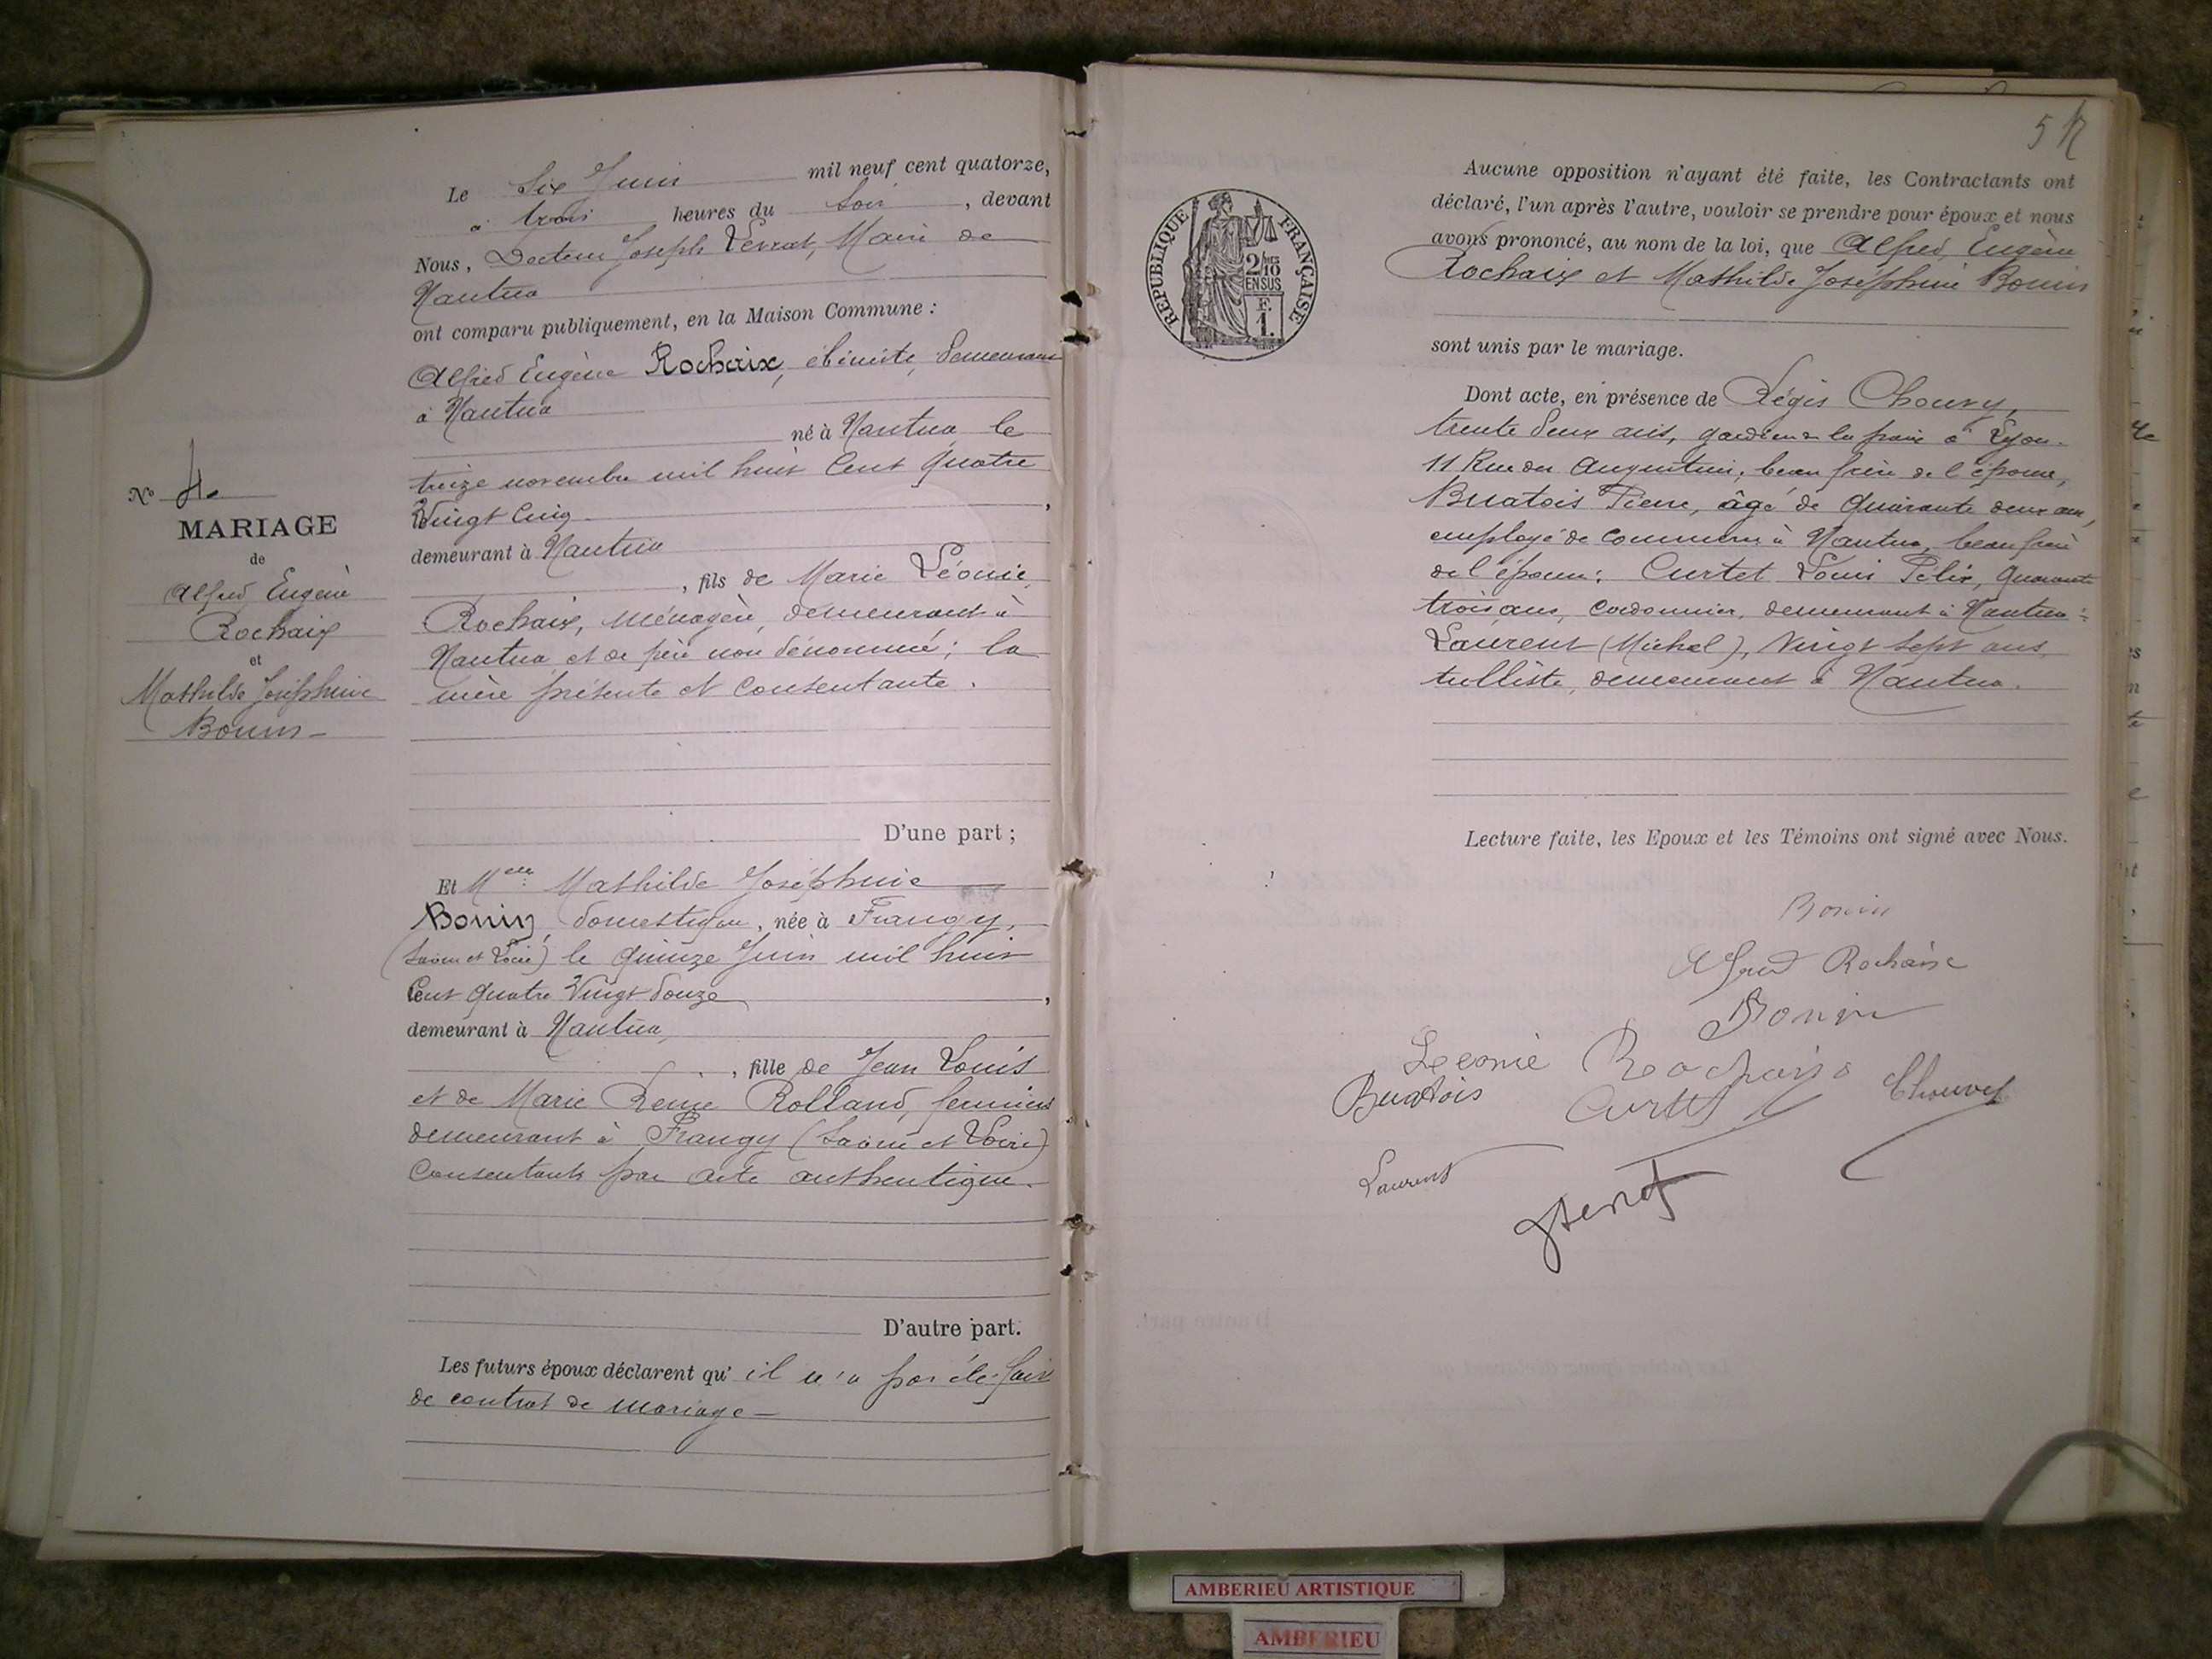 Le Six Juin mil neuf cent quatorze,
à trois heures du Soir, devant
Nous, Docteur Joseph Levrat, Maire de
Nantua
ont comparu publiquement, en la Maison Commune :
Alfred Eugène Rochaix, ébéniste, demeurant
à Nantua
né à Nantua le
treize novembre mil huit Cent quatre
Vingt Cinq,
demeurant à Nantua
, fils de Marie Léonie
Rochaix, Ménagère, demeurant à
Nantua et de père non dénommé ; la
mère présente et Consentante.
D'une part ;
No 4
MARIAGE
de
Alfred Eugène
Rochaix
et
Mathilde Joséphine
Bonin
Et Melle Mathilde Joséphine
Bonin, domestique, née à Frangy,
(Saône et Loire) le quinze Juin mil huit
Cent quatre Vingt douze,
demeurant à Nantua,
, fille de Jean Louis
et de Marie Reine Rolland, fermiers
demeurant à Frangy (Saône et Loire)
Consentants par acte authentique.
D'autre part.
Les futurs époux déclarent qu'il n'a pas été fait
de contrat de mariage
5
RÉPUBLIQUE FRANÇAISE
2/10 EN SUS
F.
1.
Aucune opposition n'ayant été faite, les Contractants ont
déclaré, l'un après l'autre, vouloir se prendre pour époux et nous
avons prononcé, au nom de la loi, que Alfred Eugène
Rochaix et Mathilde Joséphine Bonin
sont unis par le mariage.
Dont acte, en présence de Régis Chouvy,
trente deux ans, gardien de la paix à Lyon
11 Rue des Augustins, beau frère de l'épouse,
Buatois Pierre, âgé de Quarante deux ans,
employé de commerce à Nantua, beau frère
de l'épouse ; Curtet Louis Félix, Quarante
trois ans, cordonnier, demeurant à Nantua ;
Laurent (Michel), Vingt sept ans,
tulliste, demeurant à Nantua.
Lecture faite, les Epoux et les Témoins ont signé avec Nous.
Bonin
Alfred Rochaix
Bonin
Leonie Rochaix
Buatois Curtet Chouvy
Laurent
AMBERIEU ARTISTIQUE
AMBERIEU